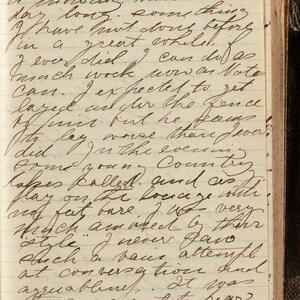 day long. Something
I have not done before
in a great while. if
I ever did. I can do as
much work now as
can. I expected to get
layed under the fence
by but he seems
to lay worse than I ever
did. In the evening
Some young Country
called and as I
lay on the lounge with
my feet bare. I was very
much amused by their
style. I never saw
such a vain attempt
at conversation and
. It was